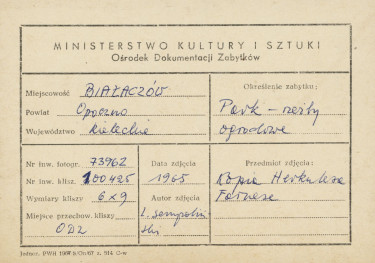 MINISTERSTWO KULTURY I SZTUKI
Ośrodek Dokumentacji Zabytków
Miejscowość BIAŁACZÓW
Powiat Opoczno
Województwo kieleckie
Określenie zabytku:
Park - rzeźby
ogrodowe
Nr inw. fotogr. 73962
Nr inw. klisz 100425
Wymiary kliszy 6x9
Miejsce przechow. kliszy
ODZ
Data zdjęcia
1965
Autor zdjęcia
Ł. Sempoliń-
ski
Przedmiot zdjęcia:
Kopia Herkulesa
Farnese
Jednor. PWH